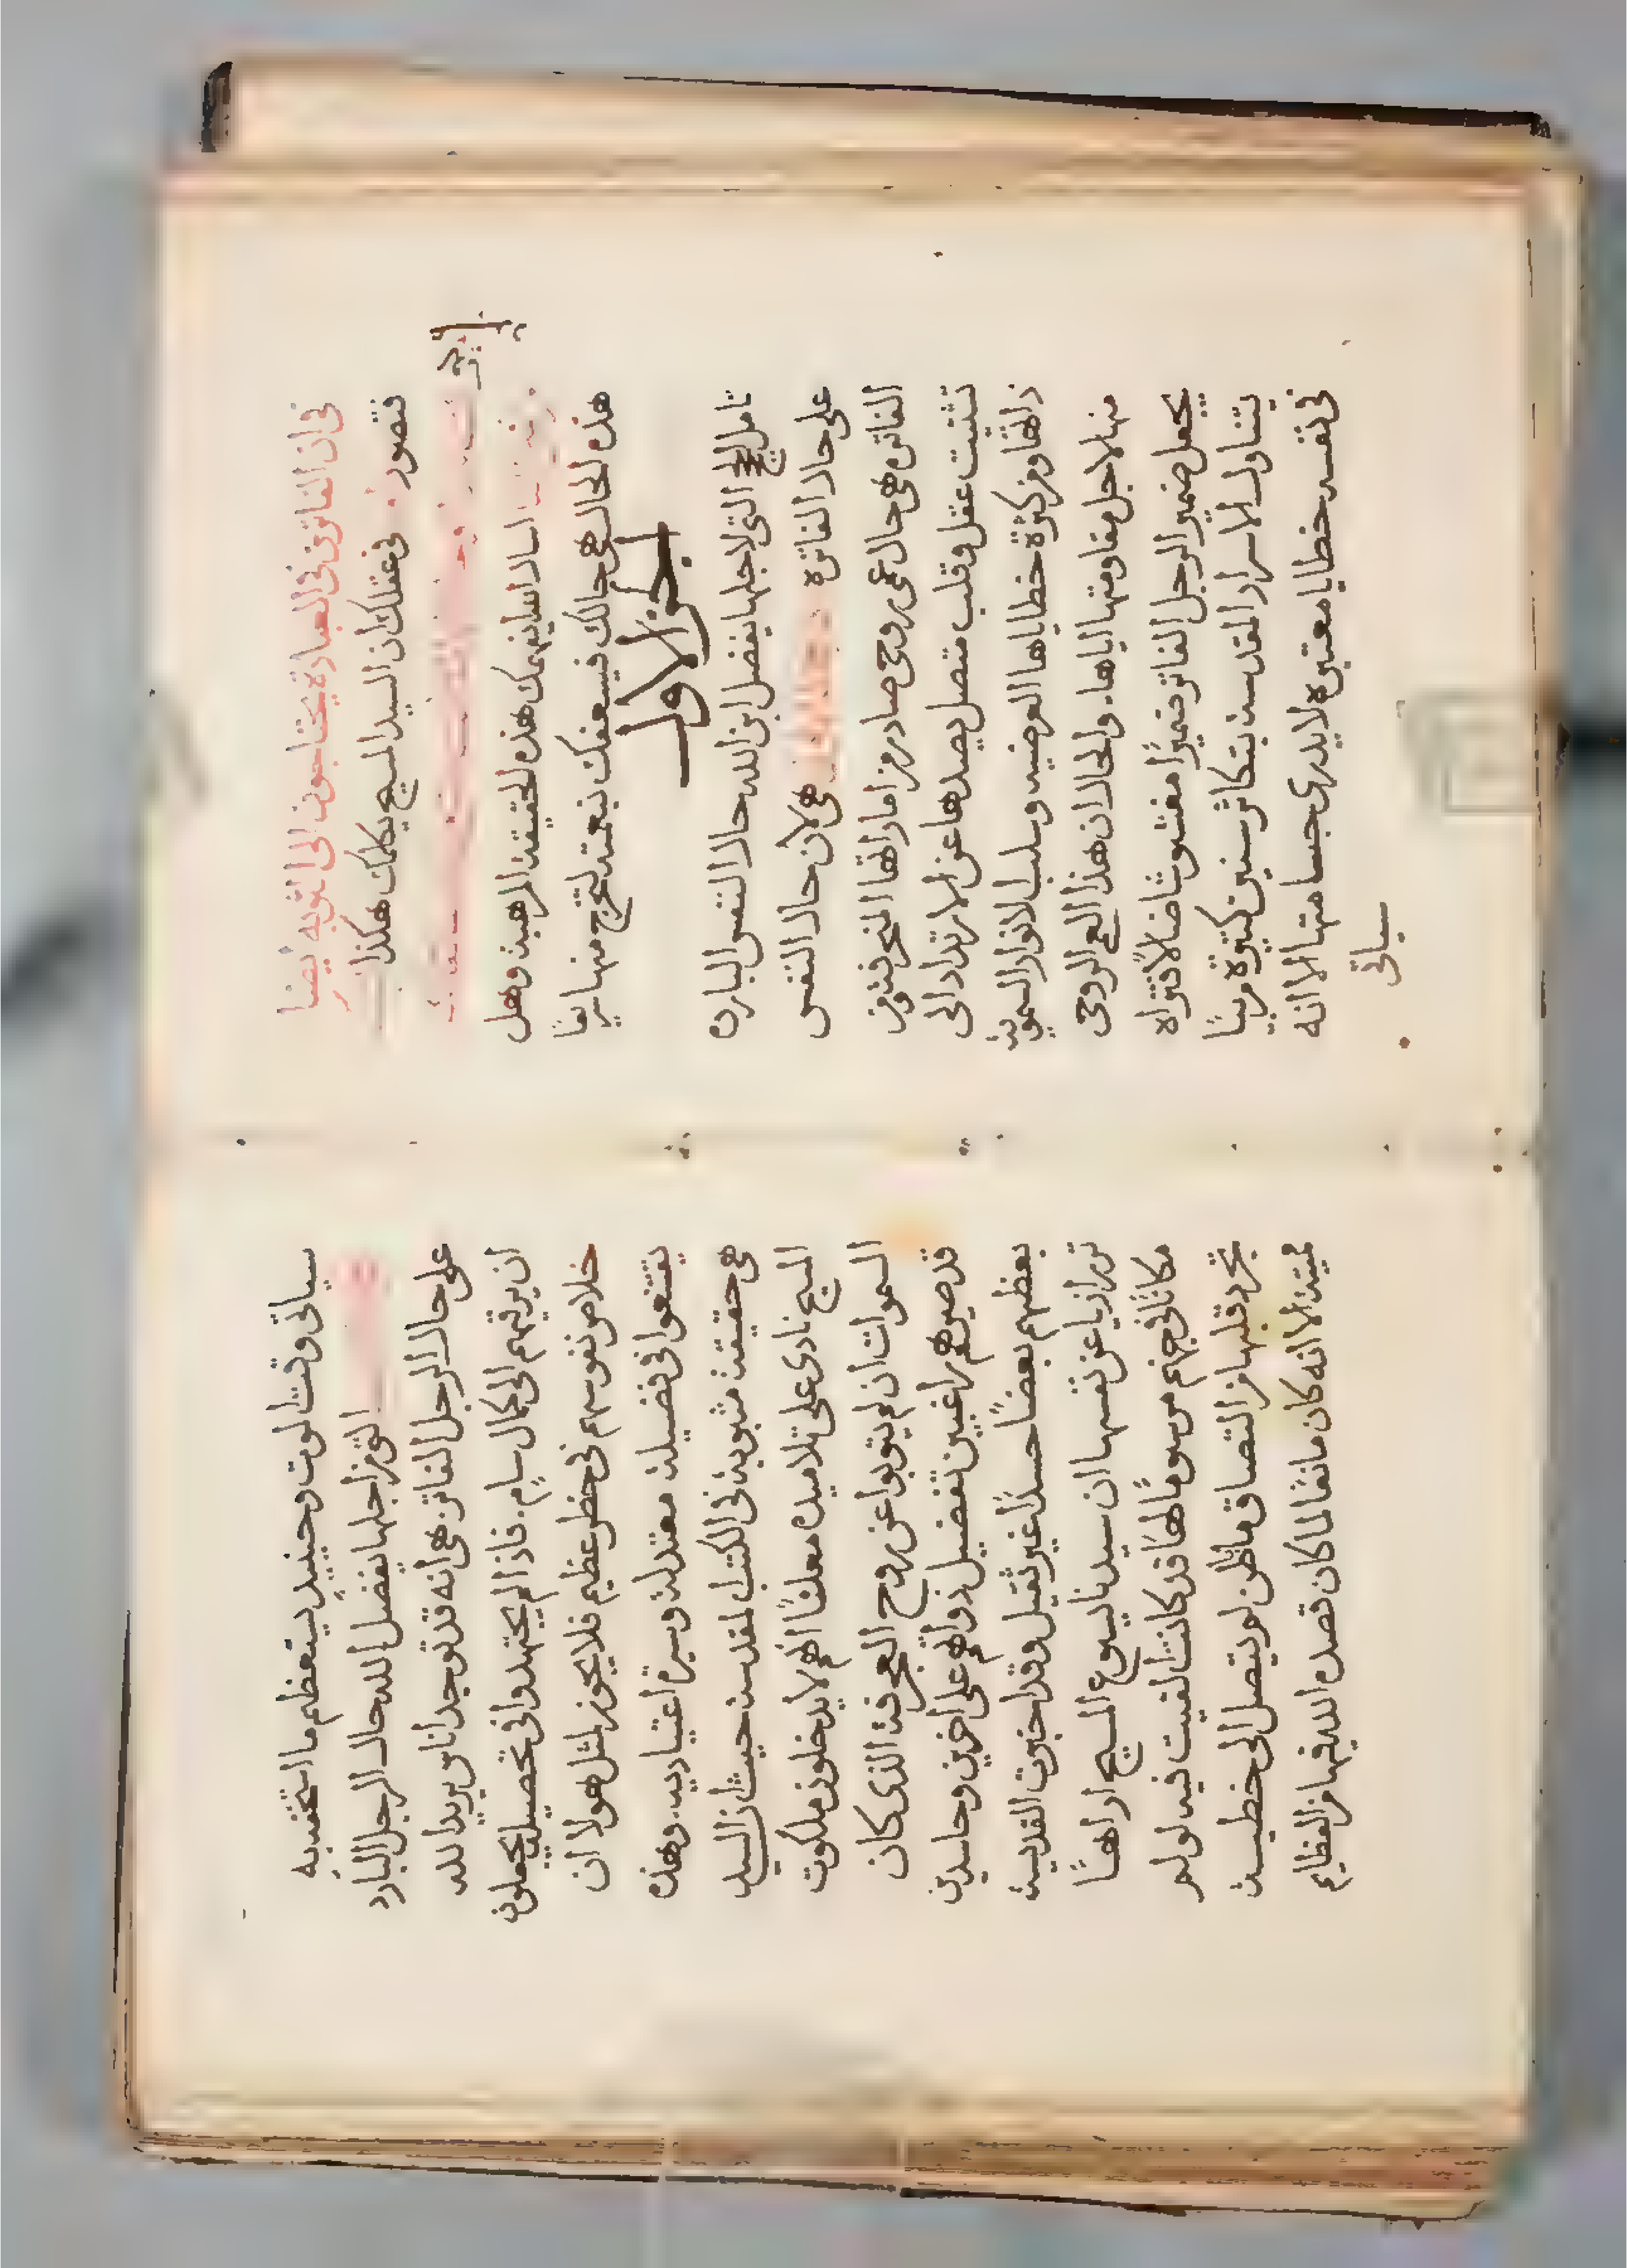 في ان الفاترين في العبادة يحتاجون الى التوبه ايضا
فتصور في عقلك ان السيد المسيح يكلمك هكذا
هذه الحقيقة المرهبة وهل
هذه الحال هي حالك فيسعفك بنعمته لتخرج منها سريعًا
الجزء الاول
تامل الحجج التي لاجلها يفضل ابن الله حال النفس الباردة
على حال الفاترة هي لان حال النفس
الفاترة هي حال عمى روحي صادر من اماراتها المنحرفة ومن
تشتت عقل وقلب متصل يصدها عن الارتداد الى
ذاتها ومن كثرة خطاياها العرضيه وسلب الانوار السموية
منها لاجل مقاومتها اياها. والحال ان هذا العمى الروحي
يجعل ضمير الرجل الفاتر ضميرًا مغشوشا ضالًا فتراه
يتناول الاسرار المقدسة بتكاثر سنين كثيرة مربيًا
في نفسه خطايا معتبرة لا يدري جسامتها الا انه
سياتي
سياتي وقت الموت وحينيذٍ يستعظم ما استخف به
التي من اجلها يفضل الله حال الرجل البارد
على حال الرجل الفاتر هي انه قد توجد اناس يريد الله
ان يرقيهم الى كمال سامٍ. فاذا لم يجتهدوا في تحصيله يجعلون
خلاص نفوسهم في خطر عظيم فلا يجوز لمثل هولا ان
يقتنعوا في فضيلة معتدلة وسيرة اعتياديه. وهذه
هي حقيقة مثبوبة في الكتب المقدسة حيث ان السيد
المسيح نادى على تلاميذه معلنًا انهم لا يدخلون ملكوت
السموات ان لم يتوبوا عن روح العجرفة الذي كان
قد صيرهم راغبين تفضيل ذواتهم على اخرين وحاسدين
بعضهم بعضًا حسدًا غير ثقيل وقد اخبرت القديسة
تريزيا عن نفسها ان سيدنا يسوع المسيح اراها
مكانًا في جهنم مرسومًا لها قد كانت القيت فيه لو لم
تجرد قلبها من التصاق ما لم يتصل الى خطية
مميتة الا انه كان مانعًا لما كان قصده الله فيها من العظايم